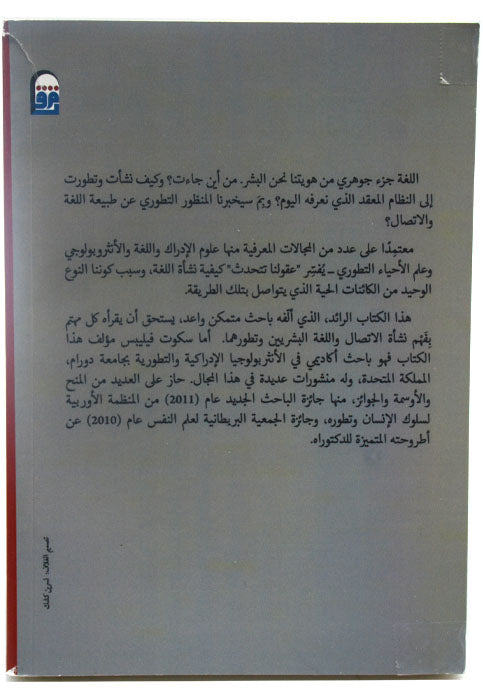 اللغة جزء جوهري من هويتنا نحن البشر. من أين جاءت؟ وكيف نشأت وتطورت
إلى النظام المعقد الذي نعرفه اليوم؟ وبمَ سيخبرنا المنظور التطوري عن طبيعة اللغة
والاتصال؟
معتمِدًا على عدد من المجالات المعرفية منها علوم الإدراك واللغة والأنثروبولوجي
وعلم الأحياء التطوري ـ يُفسِر "عقولنا تتحدث" كيفية نشأة اللغة، وسبب كوننا النوع
الوحيد من الكائنات الحية الذي يتواصل بتلك الطريقة.
هذا الكتاب الرائد، الذي ألّفه باحث متمكن واعد، يستحق أن يقرأه كل مهتم
بِفَهْم نشأة الاتصال واللغة البشريين وتطورهما. أما سكوت فيليبس مؤلف هذا
الكتاب فهو باحث أكاديمي في الأنثربولوجيا الإدراكية والتطورية بجامعة دورام،
المملكة المتحدة، وله منشورات عديدة في هذا المجال. حاز على العديد من المنح
والأوسمة والجوائز، منها جائزة الباحث الجديد عام (2011) من المنظمة الأوربية
لسلوك الإنسان وتطوره، وجائزة الجمعية البريطانية لعلم النفس عام (2010) عن
أطروحته المتميزة للدكتوراه.
تصميم الغلاف: نسرين كشك